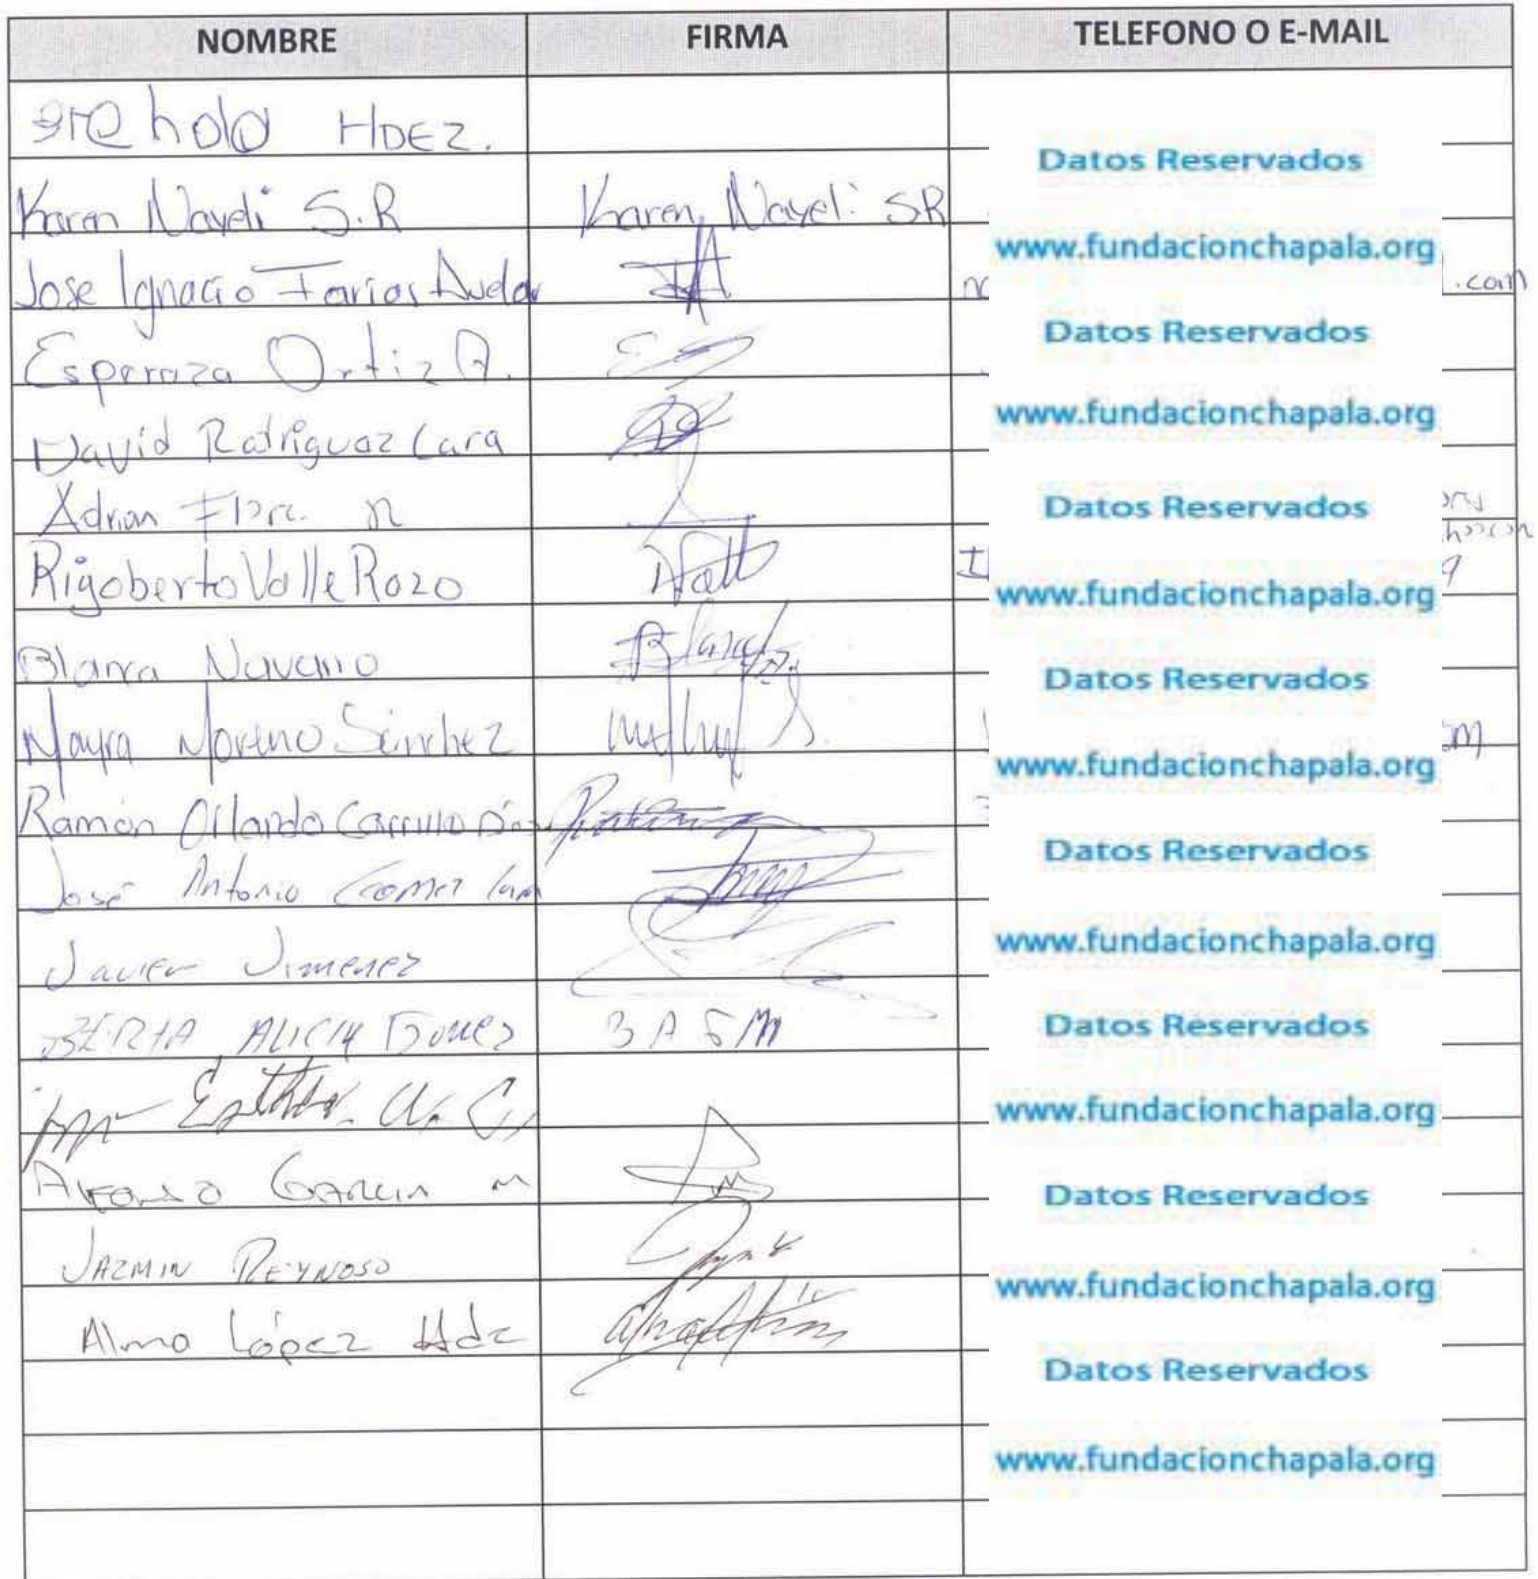 NOMBRE FIRMA TELEFONO O E-MAIL
HDEZ.
Datos Reservados
Karen Nayeli S.R Karen Nayeli SR
www.fundacionchapala.org
Jose Ignacio Farias Avelar .com
Datos Reservados
Esperaza Ortiz A.
www.fundacionchapala.org
David Rodriguez Lara
Datos Reservados
Adrian
Rigoberto Valle Rozo
www.fundacionchapala.org
Blanca Navarro
Datos Reservados
Mayra Moreno Sánchez
www.fundacionchapala.org
Ramón Orlando Carrillo
Datos Reservados
José Antonio Gomez
Javier Jimenez
www.fundacionchapala.org
BERTA ALICIA GOMEZ BAGM
Datos Reservados
Esther
www.fundacionchapala.org
Alfonso GARCIA M
Datos Reservados
JAZMIN REYNOSO
www.fundacionchapala.org
Alma López Hdz
Datos Reservados
www.fundacionchapala.org